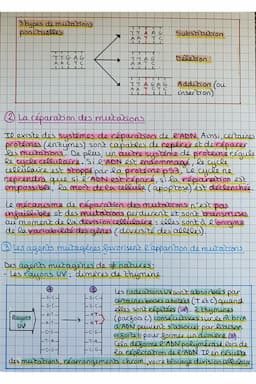 3 types de mutations
ponctuelles
Substitution
Délétion
Addition (ou
insertion)
② La réparation des mutations
Il existe des systèmes de réparation de l'ADN. Ainsi, certaines
protéines (enzymes) sont capables de repérer et de réparer
les mutations. De plus, un autre système de protéines régule
le cycle cellulaire. Si l'ADN est endommagé, le cycle
cellulaire est stoppé par la protéine p53. Le cycle ne
reprendra que si l'ADN est réparé, si la réparation est
impossible, la mort de la cellule (apoptose) est déclenchée.
Le mécanisme de réparation des mutations n'est pas
infaillible et des mutations perdurent et sont transmises
au moment de la division cellulaire : elles sont à l'origine
de la variabilité des gènes (diversité des allèles).
③ Les agents mutagènes favorisent l'apparition de mutations
Des agents mutagènes de natures :
- Les rayons UV : dimères de thymine
Rayons
UV
Les radiations UV sont absorbées par
certaines bases azotées (T et C) quand
elles sont répétées. 2 thymines
consécutives sur le brin
d'ADN peuvent s'associer par liaison
pour former un dimère
Ce dimère
réplication de l'ADN. Il en résulte
des mutations, réarrangements chrom., voire blocage division cellulaire